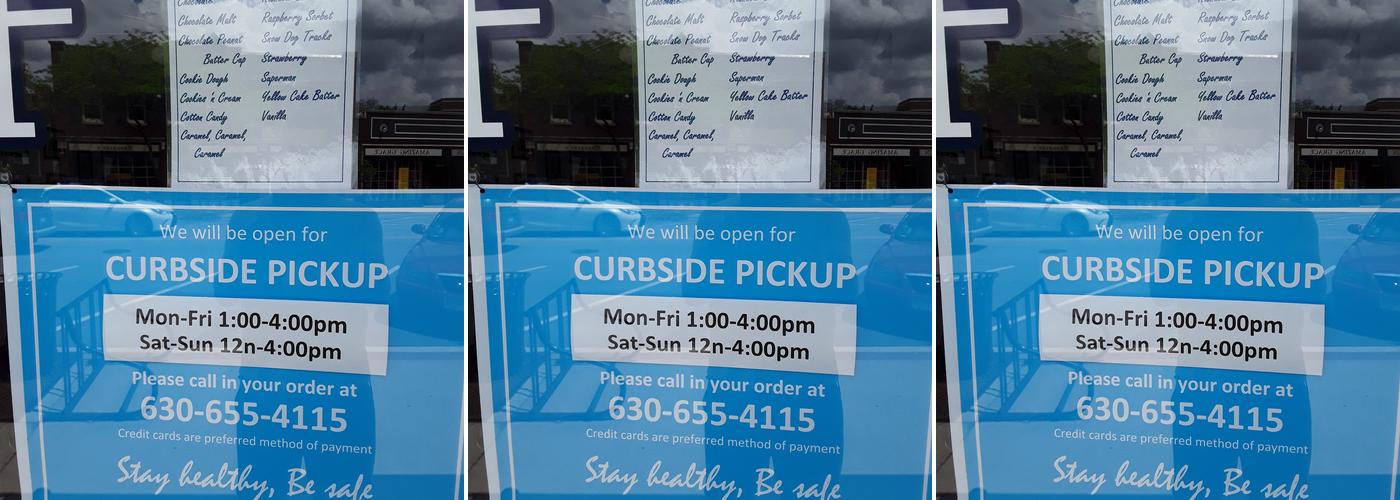 Chocolate Malt
Chocolate Peanut
Butter Cup
Cookie Dough
Cookies 'n Cream
Cotton Candy
Caramel, Caramel,
Caramel
Raspberry Sorbet
Snow Dog Tracks
Strawberry
Superman
Yellow Cake Batter
Vanilla
AMAZING GRACE
We will be open for
CURBSIDE PICKUP
Mon-Fri 1:00-4:00pm
Sat-Sun 12n-4:00pm
Please call in your order at
630-655-4115
Credit cards are preferred method of payment
Stay healthy, Be safe
Chocolate Malt
Chocolate Peanut
Butter Cup
Cookie Dough
Cookies 'n Cream
Cotton Candy
Caramel, Caramel,
Caramel
Raspberry Sorbet
Snow Dog Tracks
Strawberry
Superman
Yellow Cake Batter
Vanilla
AMAZING GRACE
We will be open for
CURBSIDE PICKUP
Mon-Fri 1:00-4:00pm
Sat-Sun 12n-4:00pm
Please call in your order at
630-655-4115
Credit cards are preferred method of payment
Stay healthy, Be safe
Chocolate Malt
Chocolate Peanut
Butter Cup
Cookie Dough
Cookies 'n Cream
Cotton Candy
Caramel, Caramel,
Caramel
Raspberry Sorbet
Snow Dog Tracks
Strawberry
Superman
Yellow Cake Batter
Vanilla
AMAZING GRACE
We will be open for
CURBSIDE PICKUP
Mon-Fri 1:00-4:00pm
Sat-Sun 12n-4:00pm
Please call in your order at
630-655-4115
Credit cards are preferred method of payment
Stay healthy, Be safe